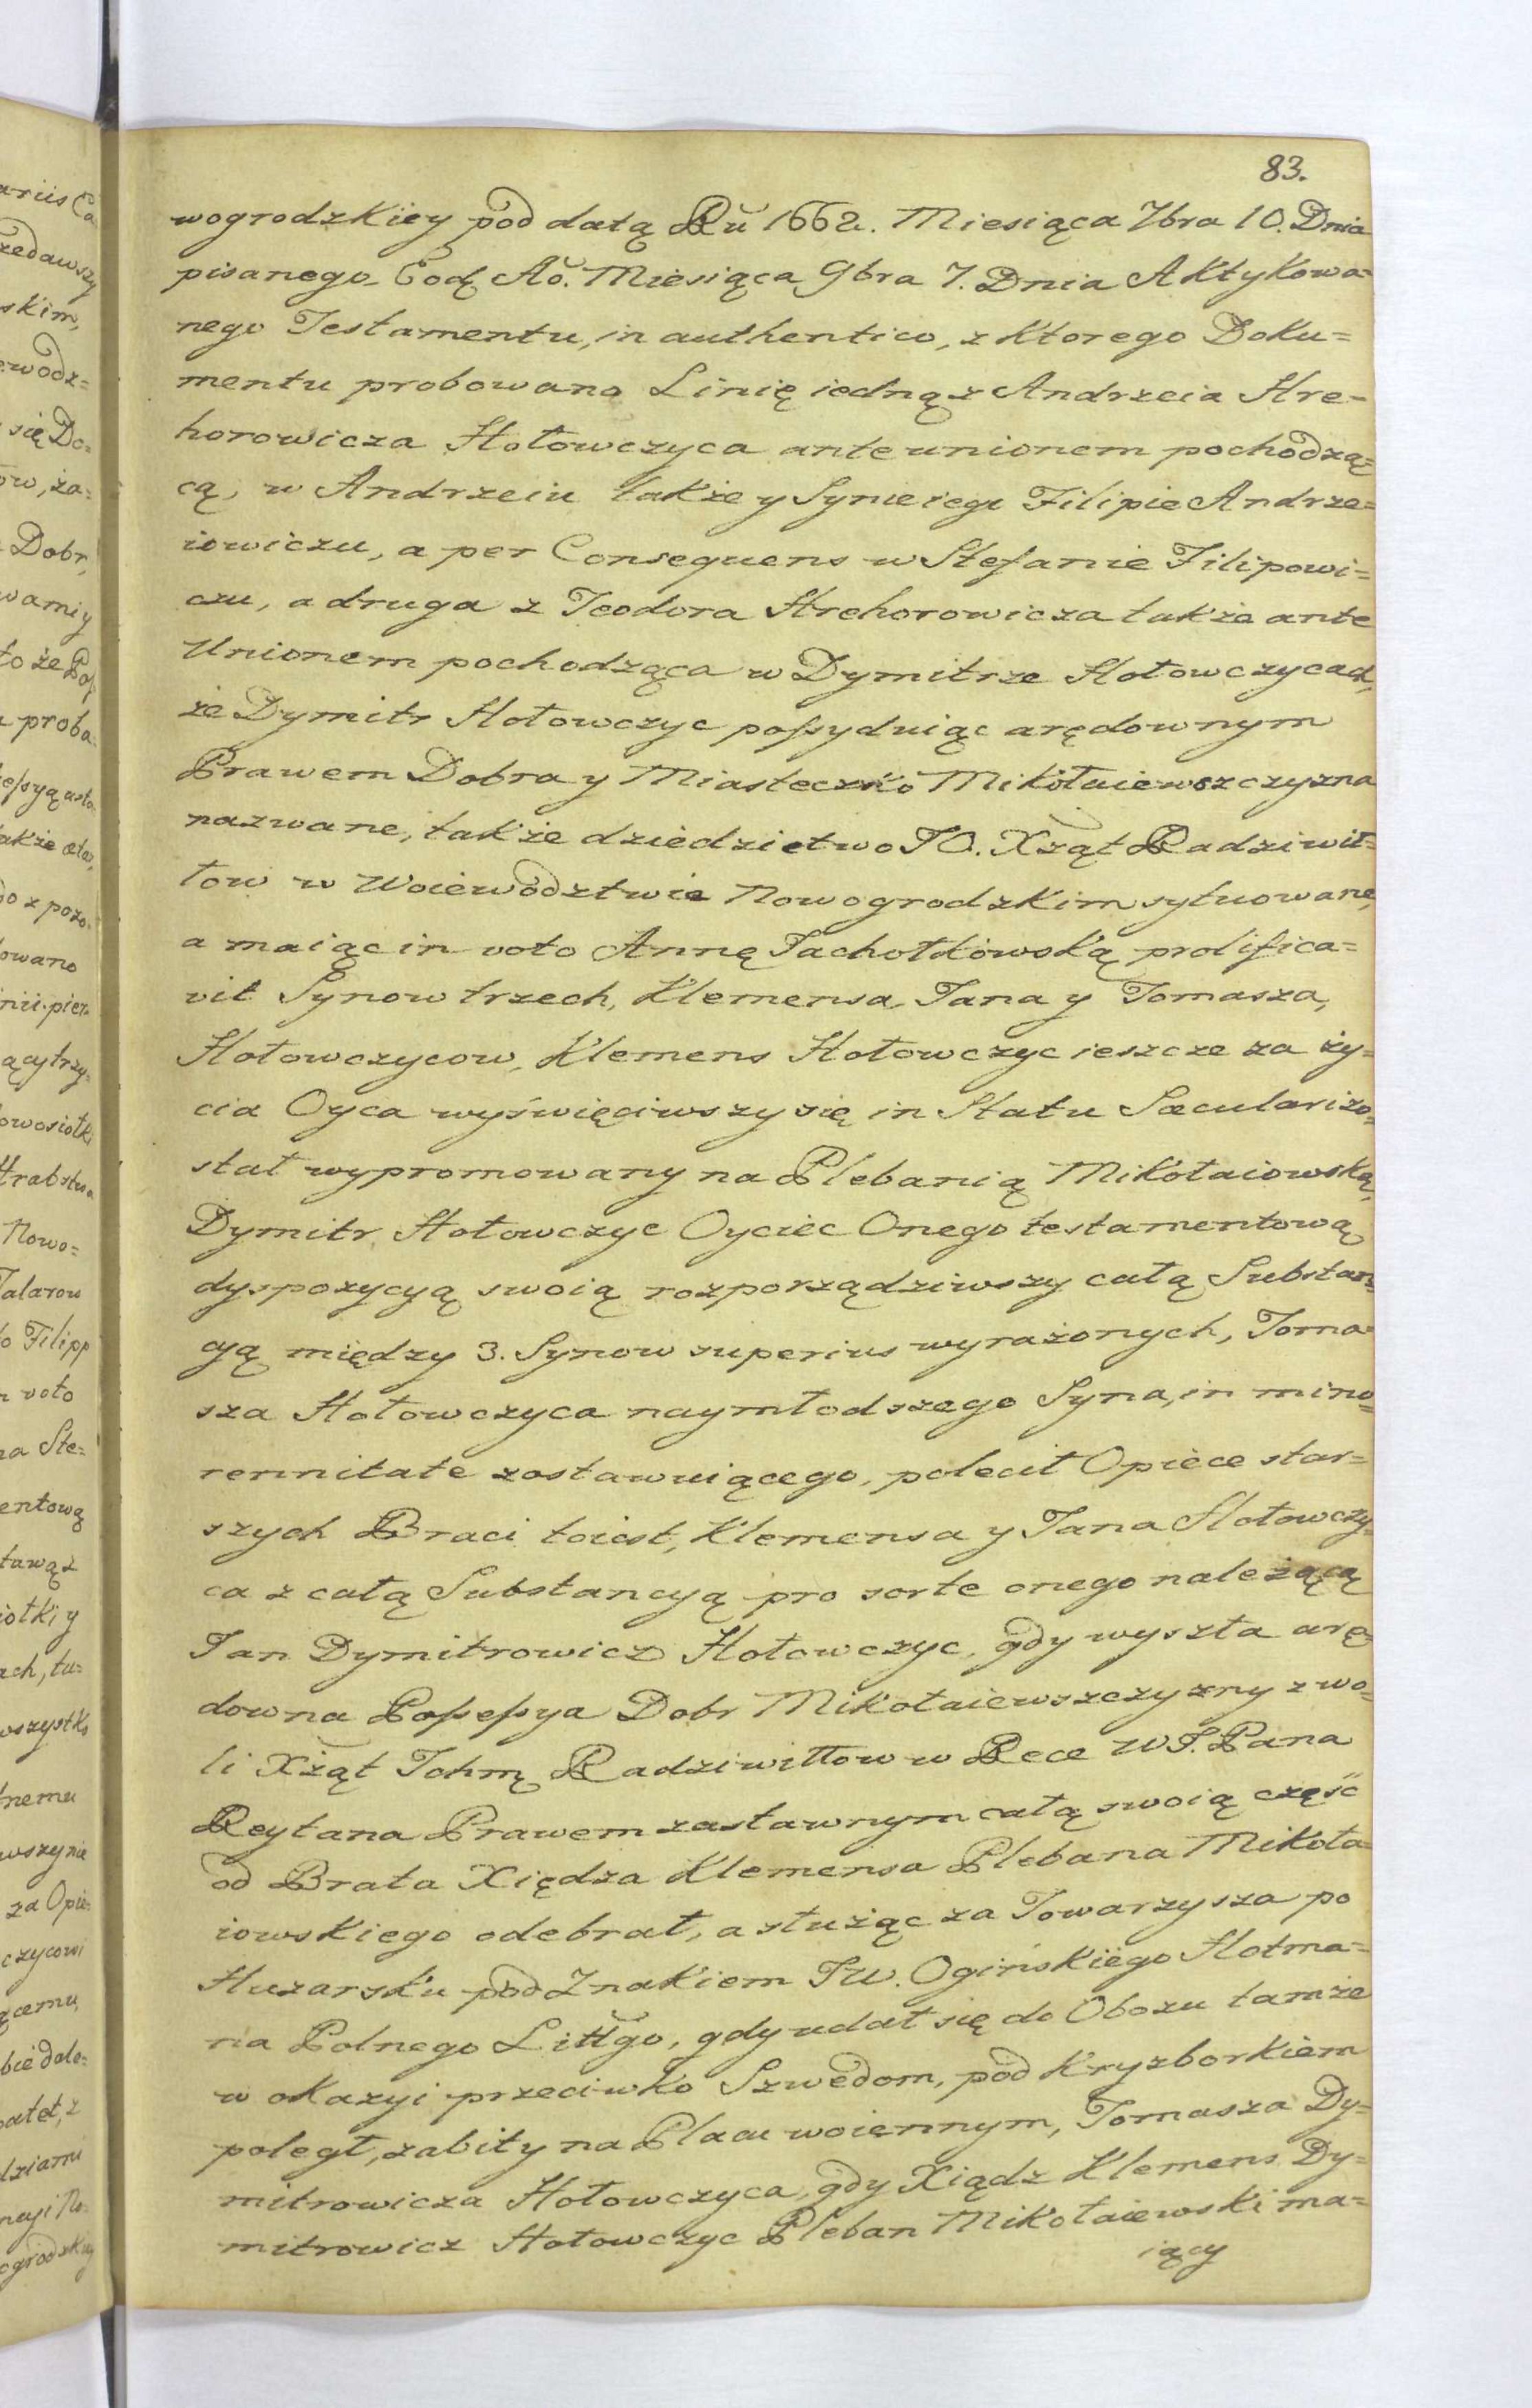 83.
wogrodzkiey pod datą Ru 1662. Miesiąca 7bra 10. Dnia
pisanego Eod. Ao. Miesiąca 9bra 7. Dnia Aktykowa=
nego Testamentu, in authentico, z ktorego Doku=
mentu probowano Linię iedną z Andrzeia Hre=
horowicza Hołowczyca ante unionem pochodzą=
cą, w Andrzeiu także y Synie iego Filipie Andrze=
iowiczu, a per Consequens w Stefanie Filipowi=
czu, a druga z Teodora Hrehorowicza także ante
Unionem pochodząca w Dymitrze Hołowczycach,
że Dymitr Hołowczyc possyduiąc arędownym
Prawem Dobra y Miasteczko Mikołaiewszczyzna
nazwane, także dziedzictwo JO. Xżąt Radziwił=
łow w Woiewodztwie Nowogrodzkim sytuowane,
a maiąc in voto Annę Jachołkowską prolifica=
vit Synow trzech, Klemensa, Jana y Tomasza,
Hołowczycow, Klemens Hołowczyc ieszcze za ży=
cia Oyca wyświęciwszy się in Statu Sæculari zo=
stał wypromowany na Plebanią Mikołaiowską,
Dymitr Hołowczyc Oyciec Onego testamentową
dyspozycyą swoią rozporządziwszy całą Substan=
cyą między 3. Synow superius wyrażonych, Toma=
sza Hołowczyca naymłodszego Syna, in mino=
rennitate zostawuiącego, polecił Opiece star=
szych Braci toiest, Klemensa y Jana Hołowczy=
ca z całą Substancyą pro sorte onego należącą
Jan Dymitrowicz Hołowczyc, gdy wyszła arę=
downa Possessya Dobr Mikołaiewszczyzny z wo=
li Xżąt Ichmę Radziwiłłow w Ręce WJ. Pana
Reytana Prawem zastawnym całą swoią część
od Brata Xiędza Klemensa Plebana Mikoła=
iowskiego odebrał, a służąc za Towarzysza po
Huzarsku pod Znakiem JW. Ogińskiego Hotma=
na Polnego Littgo, gdy udał się do Obozu tamże
w okazyi przeciwko Szwedom, pod Kryzborkiem
poległ, zabity na Placu woiennym, Tomasza Dy=
mitrowicza Hołowczyca, gdy Xiądz Klemens Dy=
mitrowicz Hołowczyc Pleban Mikołaiewski ma=
iący